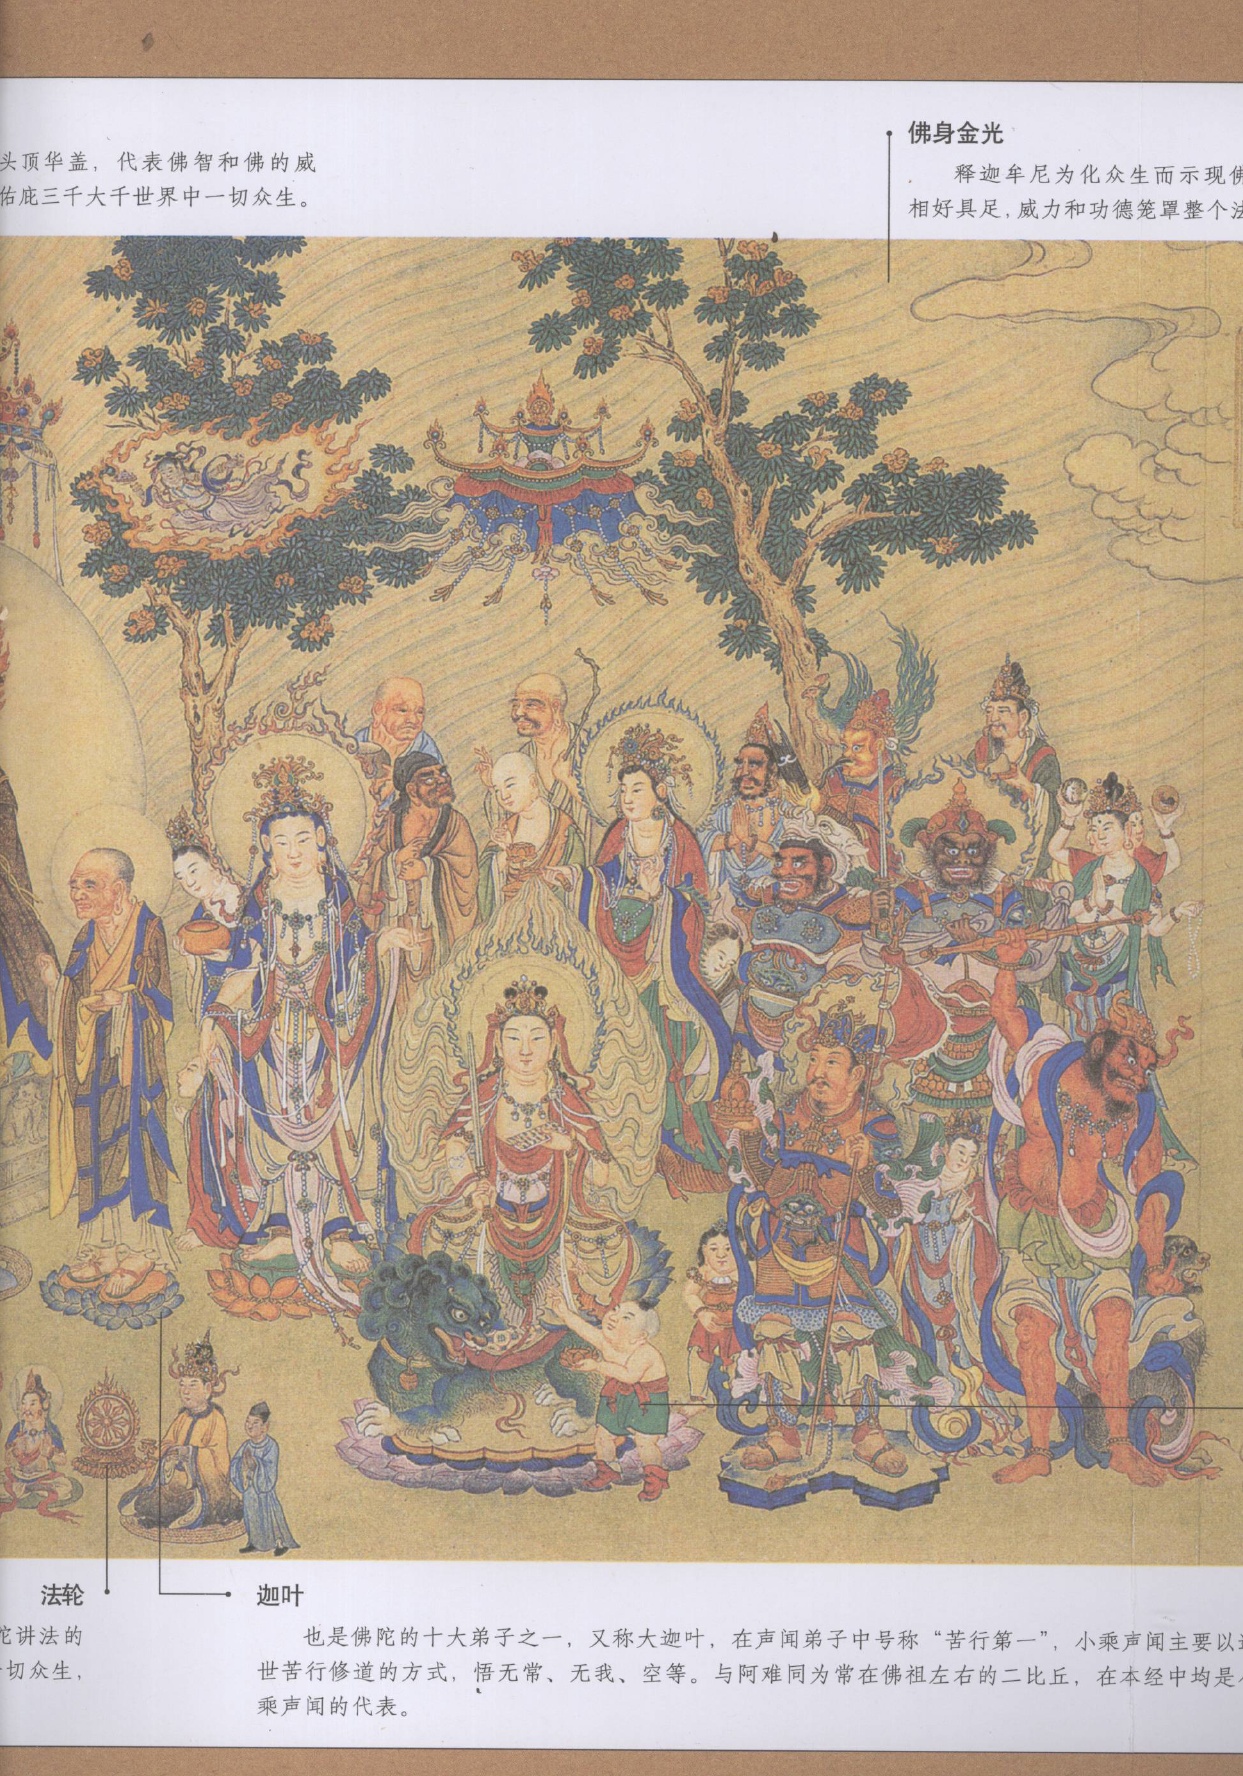 头顶华盖，代表佛智和佛的威
佑庇三千大千世界中一切众生。
佛身金光
释迦牟尼为化众生而示现佛
相好具足，威力和功德笼罩整个法
法轮
陀讲法的
一切众生，
迦叶
也是佛陀的十大弟子之一，又称大迦叶，在声闻弟子中号称“苦行第一”，小乘声闻主要以
世苦行修道的方式，悟无常、无我、空等。与阿难同为常在佛祖左右的二比丘，在本经中均是
乘声闻的代表。